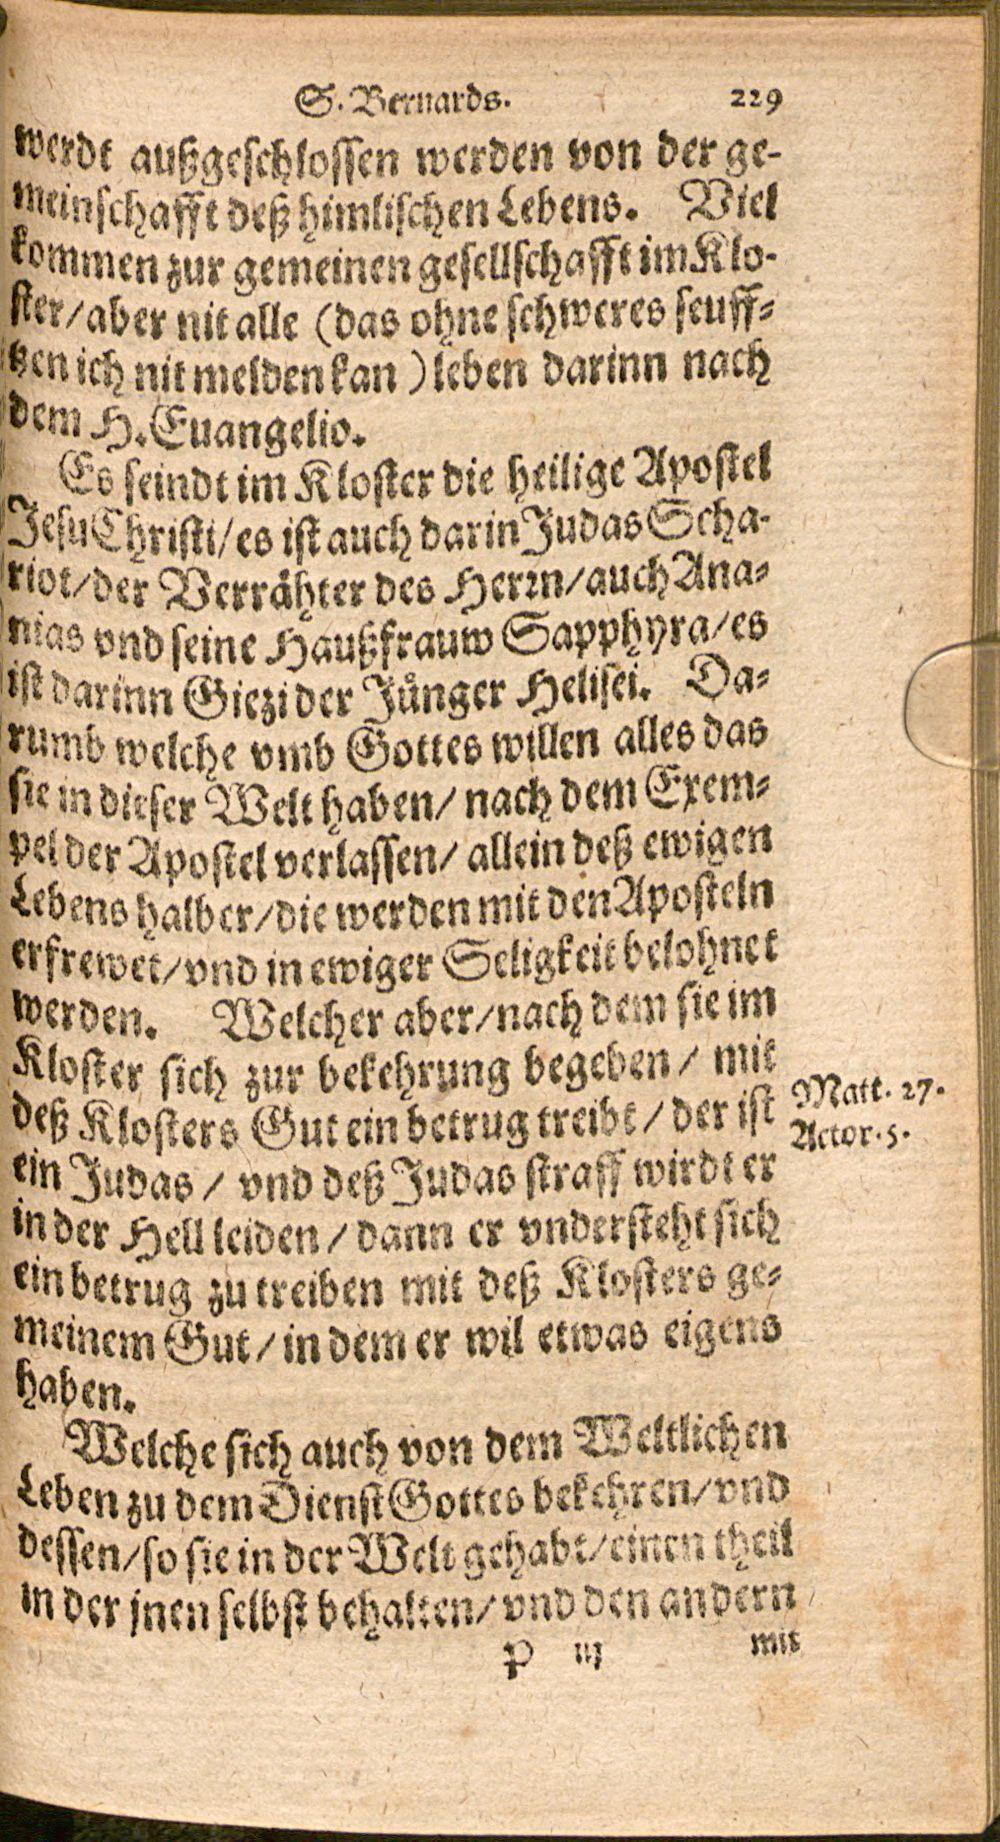 S. Bernards. 229
werdt außgeschlossen werden von der ge-
meinschafft deß himlischen Lebens. Viel
kommen zur gemeinen gesellschafft im Klo-
ster/aber nit alle (das ohne schweres seuff-
tzen ich nit melden kan) leben darinn nach
dem H. Euangelio.
Es seindt im Kloster die heilige Apostel
Jesu Christi/es ist auch darin Judas Scha-
riot/der Verrähter des Herrn/auch Ana-
nias vnd seine Haußfrauw Sapphyra/es
ist darinn Giezi der Jünger Helisei. Da-
rumb welche vmb Gottes willen alles das
sie in dieser Welt haben/ nach dem Exem-
pel der Apostel verlassen/ allein deß ewigen
Lebens halber/die werden mit den Aposteln
erfrewet/vnd in ewiger Seligkeit belohnet
werden. Welcher aber/nach dem sie im
Kloster sich zur bekehrung begeben / mit
deß Klosters Gut ein betrug treibt / der ist
Matt. 27.
Actor. 5.
ein Judas / vnd deß Judas straff wirdt er
in der Hell leiden / dann er vndersteht sich
ein betrug zu treiben mit deß Klosters ge-
meinem Gut / in dem er wil etwas eigens
haben.
Welche sich auch von dem Weltlichen
Leben zu dem Dienst Gottes bekehren/vnd
dessen/so sie in der Welt gehabt/einen theil
in der jnen selbst behalten/ vnd den andern
P iij mit